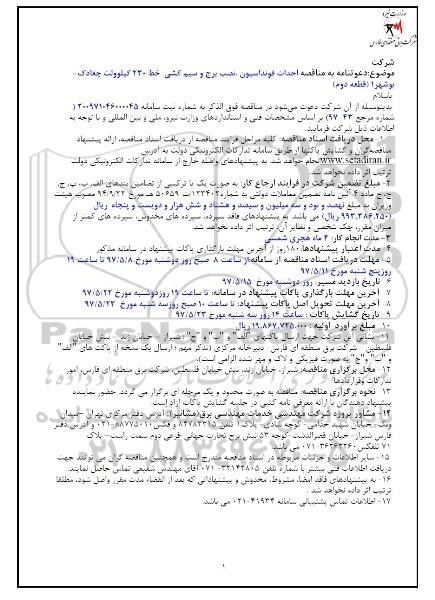 وزارت نیرو
شرکت برق منطقه‌ای فارس
شرکت
موضوع:دعوتنامه به مناقصه احداث فونداسیون ،نصب برج و سیم کشی خط ۲۳۰ کیلوولت چغادک-
بوشهر۱ (قطعه دوم)
باسلام
بدینوسیله از آن شرکت دعوت می‌شود در مناقصه فوق الذکر به شماره ثبت سامانه ۲۰۰۹۷۱۰۴۶۰۰۰۰۴۵ (
شماره مرجع ۴۳-۹۷) بر اساس مشخصات فنی و استانداردهای وزارت نیرو، ملی و بین المللی و با توجه به
اطلاعات ذیل شرکت فرمایید.
۱- محل دریافت اسناد مناقصه: کلیه مراحل فرایند مناقصه از دریافت اسناد مناقصه، ارائه پیشنهاد
مناقصه‌گران و گشایش پاکتها از طریق سامانه تدارکات الکترونیکی دولت به آدرس
www.setadiran.ir انجام خواهد شد. به پیشنهادهای واصله خارج از سامانه تدارکات الکترونیکی دولت
ترتیب اثر داده نخواهد شد.
۲- مبلغ تضمین شرکت در فرایند ارجاع کار: به صورت یک یا ترکیبی از تضامین بندهای الف، ب، پ، ج،
وزیران به مبلغ نهصد و نود و سه میلیون و سیصد و هشتاد و شش هزار و دویست و پنجاه ریال
(۹۹۳،۳۸۶،۲۵۰ ریال) می باشد. به پیشنهادهای فاقد سپرده، سپرده های مخدوش، سپرده های کمتر از
میزان مقرر، چک شخصی و نظایر آن، ترتیب اثر داده نخواهد شد.
۳- مدت انجام کار: ۴ ماه هجری شمسی
۴- مدت اعتبار پیشنهادها: ۱۸۰ روز از آخرین مهلت بارگذاری پاکات پیشنهاد در سامانه مذکور
۵- مهلت دریافت اسناد مناقصه از سامانه:از ساعت ۸ صبح روز دوشنبه مورخ ۹۷/۵/۸ تا ساعت ۱۹
روز پنج شنبه مورخ ۹۷/۵/۱۱
۶- تاریخ بازدید مسیر: روز دوشنبه مورخ ۹۷/۵/۱۵
۷- آخرین مهلت بارگذاری پاکات پیشنهاد در سامانه: تا ساعت ۱۹ روز دوشنبه مورخ ۹۷/۵/۲۲
۸- آخرین مهلت تحویل اصل پاکات پیشنهاد: تا ساعت ۱۰ صبح روز سه شنبه مورخ ۹۷/۵/۲۳
۹- تاریخ گشایش پاکات : ساعت ۱۴ روز سه شنبه مورخ ۹۷/۵/۲۳
۱۰- مبلغ برآورد اولیه : ۱۹،۸۶۷،۷۲۵،۰۰۰ ریال
۱۱- نشانی این شرکت جهت ارسال پاکتهای "الف" و "ب" و "ج" : شیراز – خیابان زند – نبش خیابان
فلسطین – شرکت برق منطقه ای فارس – دبیرخانه مرکزی (تذکر مهم : ارسال یک نسخه از پاکت های "الف"
و "ب" و "ج" به صورت فیزیکی و لاک و مهر شده الزامی است).
۱۲- محل برگزاری مناقصه: شیراز، خیابان زند، نبش خیابان فلسطین، شرکت برق منطقه ای فارس، امور
تدارکات وقراردادها.
۱۳- نحوه برگزاری مناقصه: مناقصه به صورت محدود و یک مرحله ای برگزار می گردد. حضور نماینده
پیشنهاد دهندگان با ارائه معرفی نامه کتبی در جلسه گشایش پاکات آزاد است.
۱۴- مشاور پروژه شرکت مهندسی خدمات مهندسی برق(مشانیر): آدرس دفتر مرکزی تهران – میدان
۱۵- سایر اطلاعات و جزئیات مربوطه در اسناد مناقصه مندرج است و همچنین مناقصه گران می توانند جهت
دریافت اطلاعات فنی بیشتر با شماره تلفن ۳۲۱۴۲۸۰۵-۰۷۱ آقای مهندس شفیعی تماس حاصل نمایند.
۱۶- به پیشنهادهای فاقد امضا، مشروط، مخدوش و پیشنهاداتی که بعد از انقضاء مدت مقرر واصل شود، مطلقا
ترتیب اثر داده نخواهد شد .
۱۷- اطلاعات تماس پشتیبانی سامانه ۴۱۹۳۴-۰۲۱ می باشد.
۱